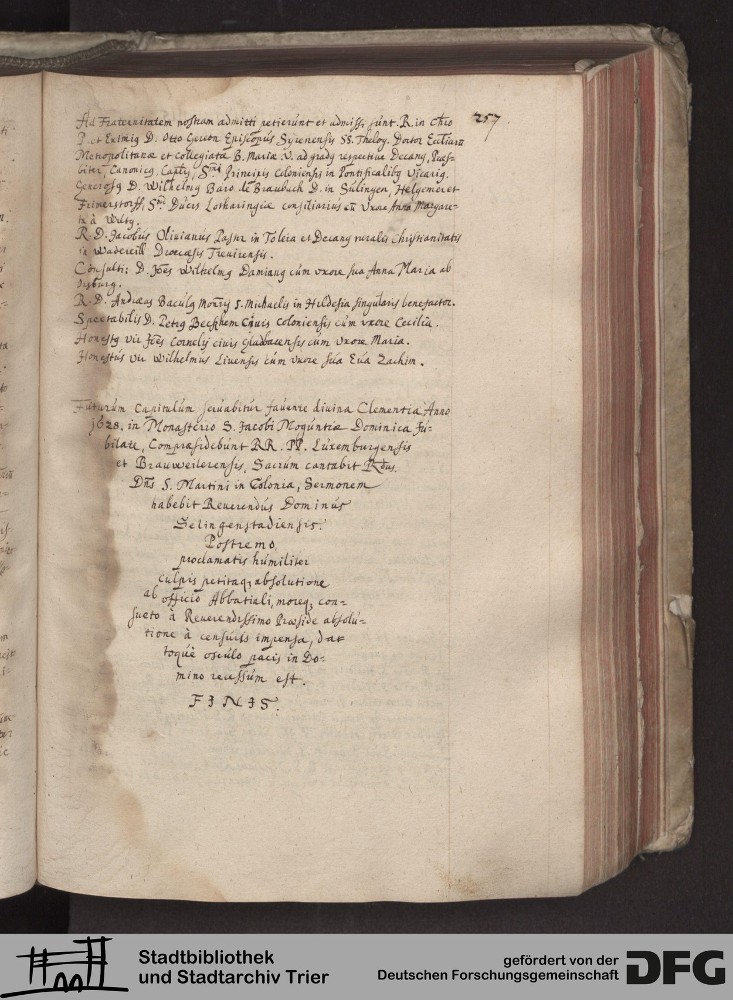 257.
Ad Fraternitatem nostram admitti petierunt et admissi sunt. R. in Chro
P. et Eximig D. Otto Gereon Episcopus Syrenensis SS. Theolog. Doctor Ecclarū
Metropolitanæ et collegiatæ B. Mariæ V. ad gradg respective Decang, Præs-
biter, Canonicg, Serᵐⁱ Principis Coloniensis in Pontificalibg Vicarig.
Generosg D. Wilhelmg Baro de Braubach D. in Sulingen, Helgemer et
Serᵐⁱ Ducis Lotharingiæ consiliarius cū Uxore Anna Margare-
ta à
R. D. Jacobus Olivianus Pastor in Toleia et Decang ruralis Christianitatis
in Wadereill Diœcesis Trevirensis.
Consulti: D. Joēs Wilhelmg Damiang cum uxore sua Anna Maria ab
R. D. Andreas Baculg Monrÿ S. Michaelis in Hildesia singularis benefactor.
Spectabilis D. Petrg Beckhem Civis Coloniensis cum uxore Cecilia.
Honestg vir Joēs Cornelÿ civis Gladbacensis cum uxore Maria.
Honestus vir Wilhelmus Livensis cum uxore sua Eva Zachim.
Futurum Capitulum servabitur favente divina Clementia Anno
1628. in Monasterio S. Jacobi Moguntiæ Dominica Ju-
bilate, Compræsidebunt RR. PP. Luxemburgensis
et Brauweilerensis, Sacrum cantabit Rdus.
Dns S. Martini in Colonia, Sermonem
habebit Reverendus Dominus
Selingenstadiensis.
Postremo,
proclamatis humiliter
culpis petitaq, absolutione
ab officio Abbatiali, moreq, con-
sueto à Reverendissimo Præside absolu-
tione à censuris impensa, da-
toquè osculo pacis in Do-
mino recessum est.
FINIS.
Stadtbibliothek
und Stadtarchiv Trier
gefördert von der
Deutschen Forschungsgemeinschaft
DFG